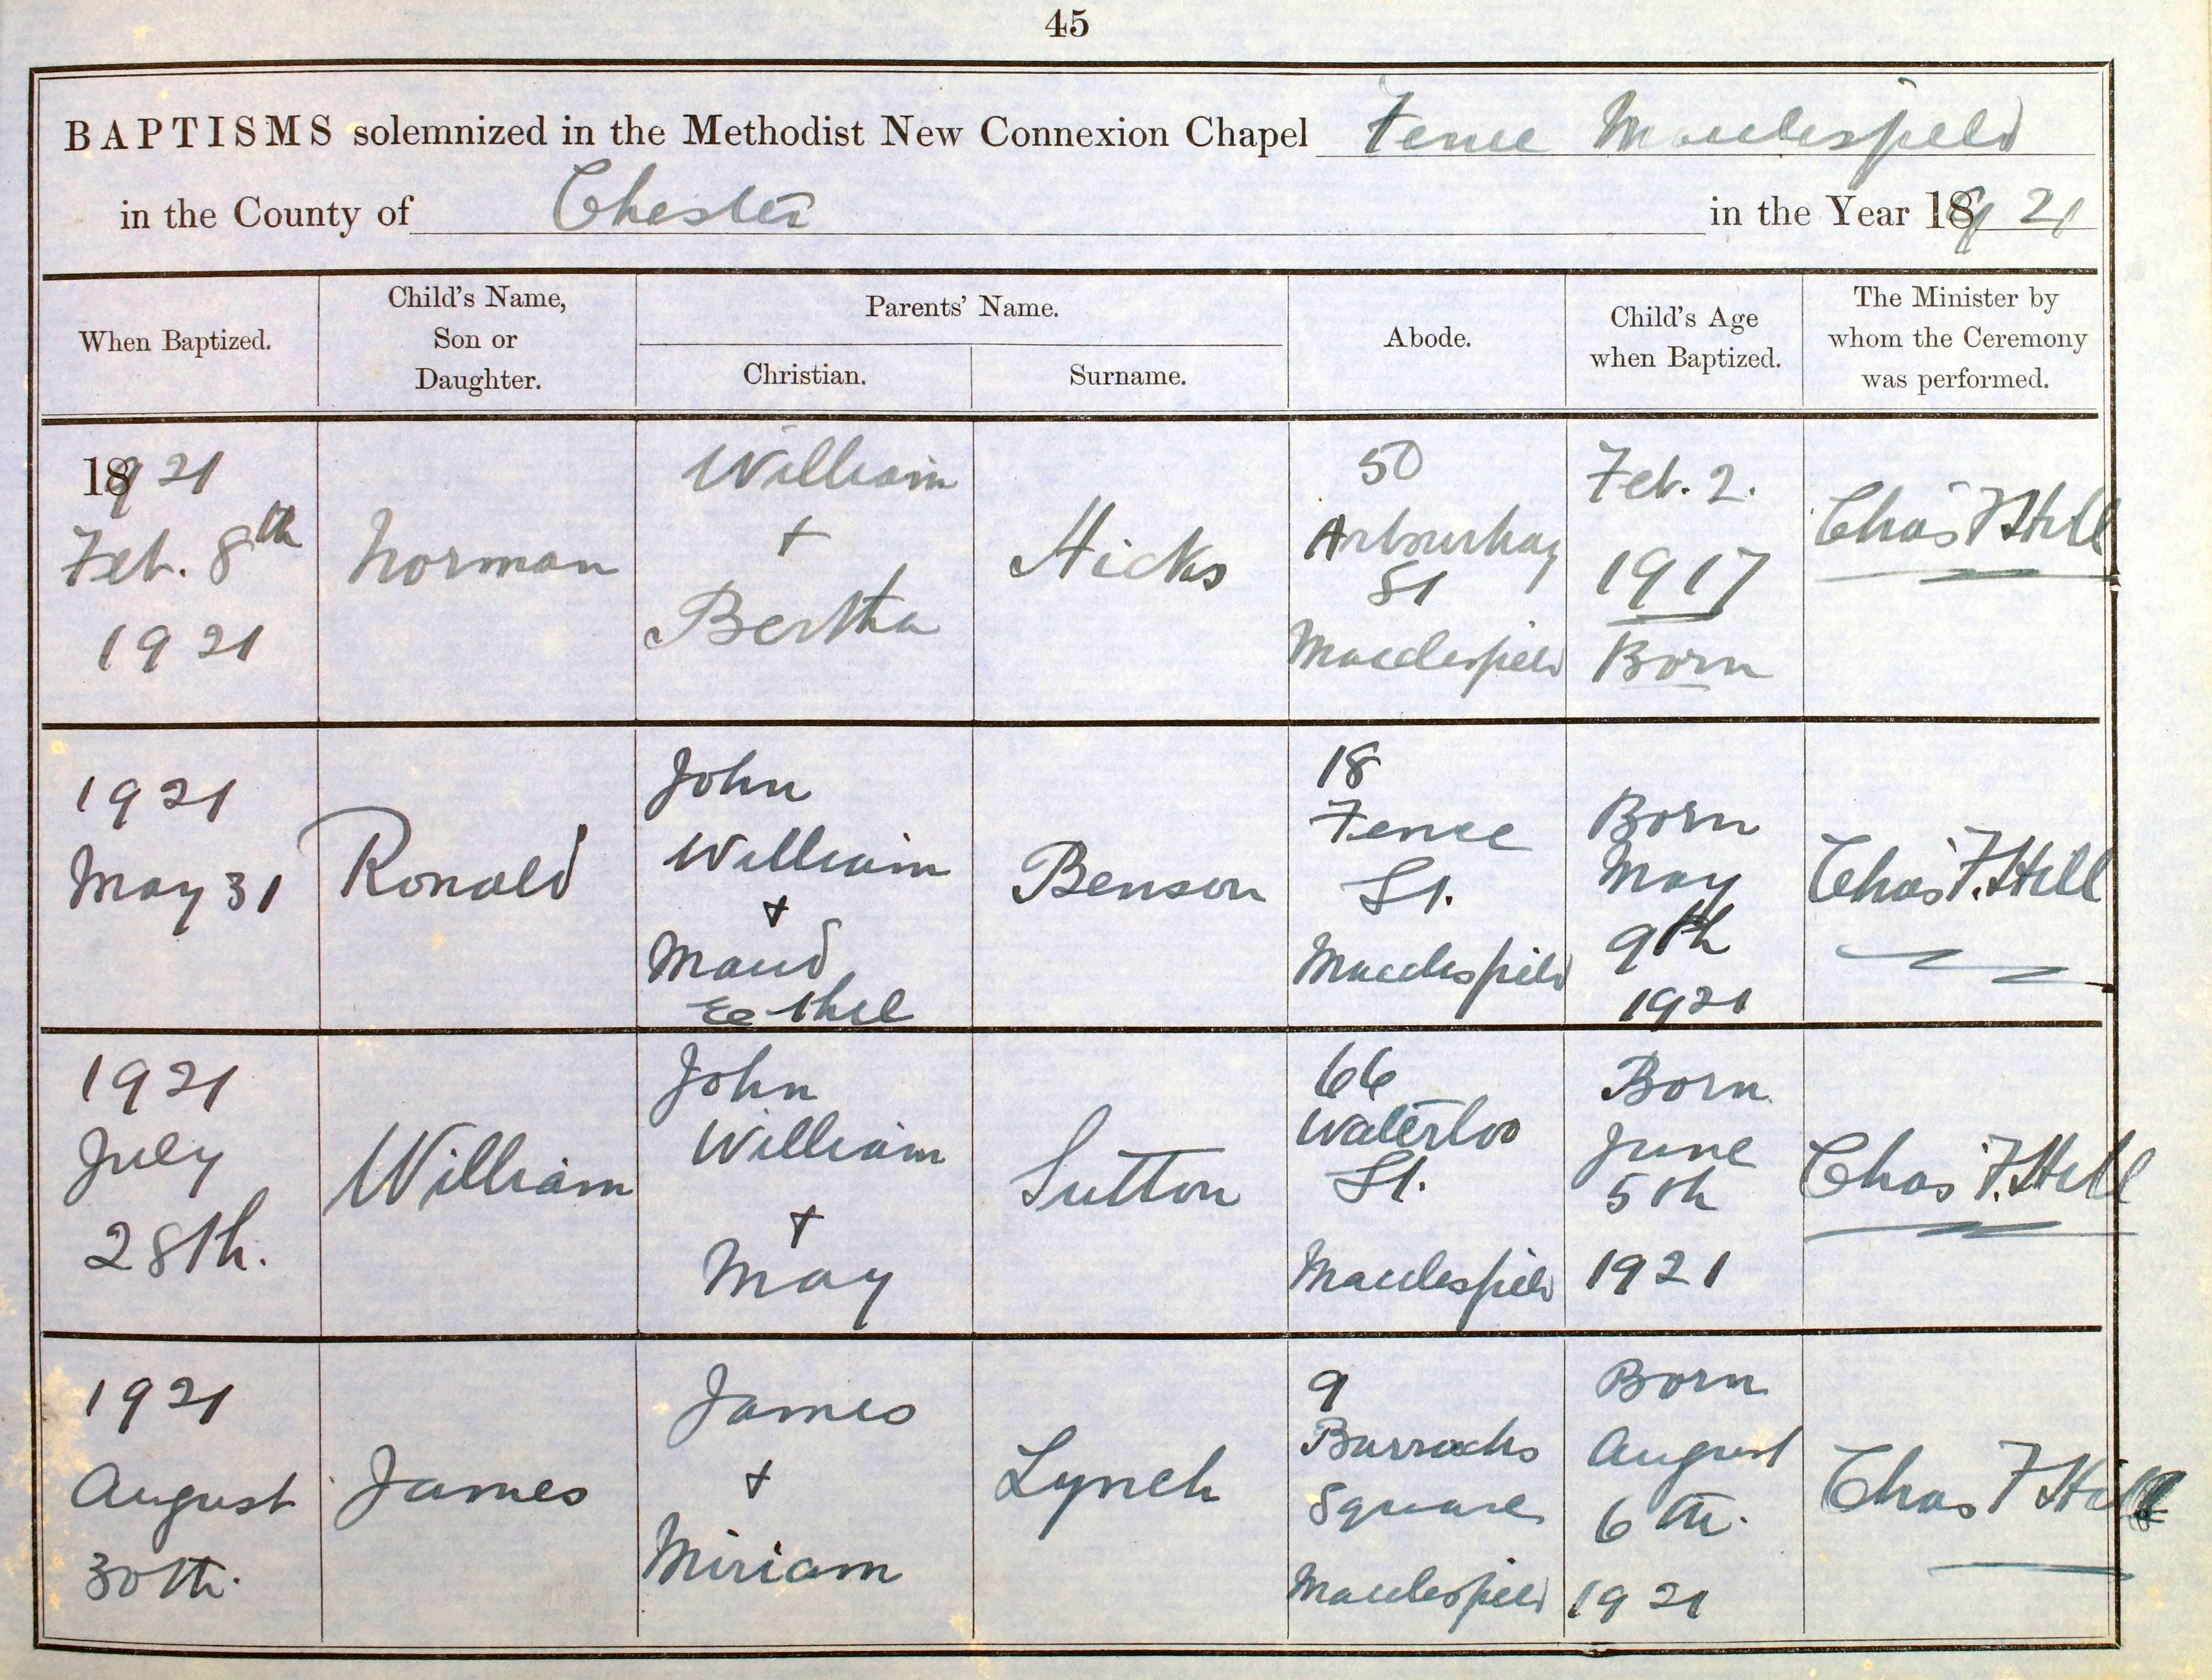 45
BAPTISMS solemnized in the Methodist New Connexion Chapel Fence Macclesfield
in the County of Chester in the Year 1921
When Baptized.
Child's Name,
Son or
Daughter.
Parents' Name.
Christian.
Surname.
Abode.
Child's Age
when Baptized.
The Minister by
whom the Ceremony
was performed.
1921
Feb. 8th
1921
Norman
William
+
Bertha
Hicks
50
Arbourhay
St
Macclesfield
Feb. 2.
1917
Born
Chas F Hill
1921
May 31
Ronald
John
William
+
Maud
Ethel
Benson
18
Fence
St.
Macclesfield
Born
May
9th
1921
Chas F. Hill
1921
July
28th.
William
John
William
+
May
Sutton
66
Waterloo
St.
Macclesfield
Born
June
5th
1921
Chas F. Hill
1921
August
30th.
James
James
+
Miriam
Lynch
9
Barracks
Square
Macclesfield
Born
August
6th.
1921
Chas F Hill